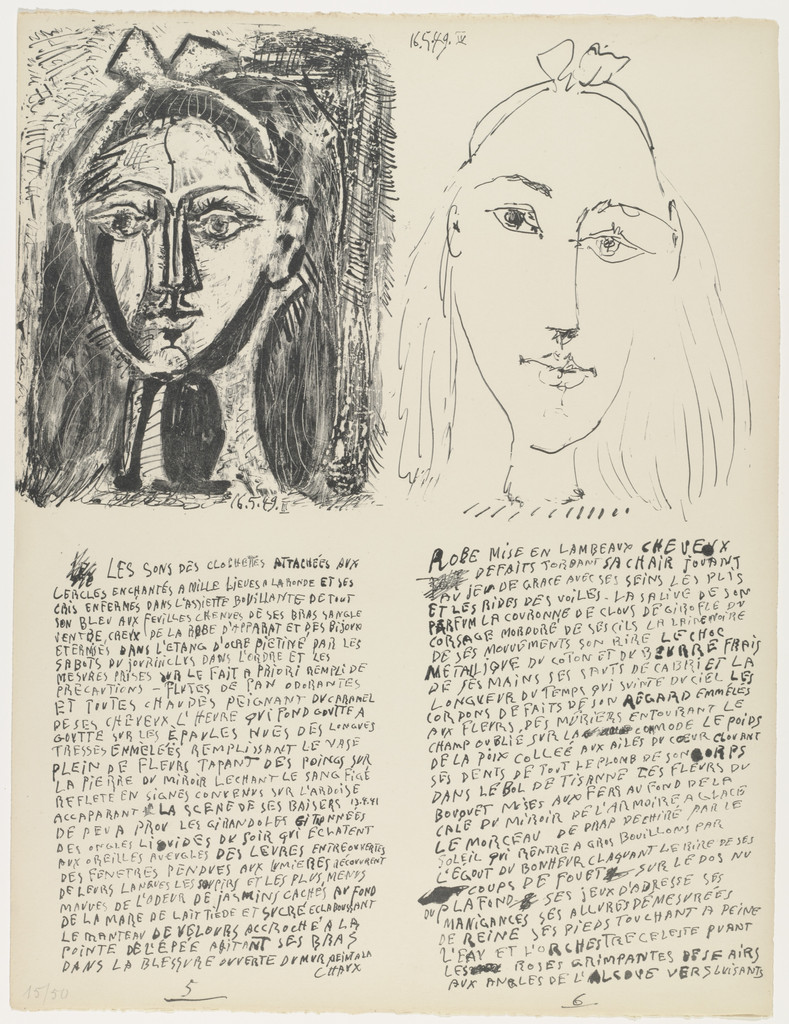 16.5.49. IV
16.5.49. II
LES SONS DES CLOCHETTES ATTACHÉES AUX
CERCLES ENCHANTÉS A MILLE LIEUES A LA RONDE ET SES
CRIS ENFERMES DANS L'ASSIETTE BOUILLANTE DE TOUT
SON BLEU AUX FEUILLES CHENUES DE SES BRAS SANGLE
VENTRE, CREUX DE LA ROBE D'APPARAT ET DES BIJOUX
ETERNISÉS DANS L'ETANG D'OCRE PIETINÉ PAR LES
SABOTS DU DANS L'ORDRE ET LES
MESURES PRISES SUR LE FAIT A PRIORI REMPLI DE
PRECAUTIONS - FLUTES DE PAN ODORANTES
ET TOUTES CHAUDES PEIGNANT DU CARAMEL
DE SES CHEVEUX L'HEURE QUI FOND GOUTTE A
GOUTTE SUR LES ÉPAULES NUES DES LONGUES
TRESSES EMMELÉES REMPLISSANT LE VASE
PLEIN DE FLEURS TAPANT DES POINGS SUR
LA PIERRE DU MIROIR LECHANT LE SANG FIGÉ
REFLETÉ EN SIGNES CONVENUS SUR L'ARDOISE
ACCAPARANT LA SCENE DE SES BAISERS
DE PEU A PROU LES GIRANDOLES
DES ONGLES LIQUIDES DU SOIR QUI ÉCLATENT
AUX OREILLES AVEUGLES DES LEVRES ENTREOUVERTES
DES FENETRES PENDUES AUX LUMIERES RECOUVRENT
DE LEURS LANGUES LES SOUPIRS ET LES PLUS MENUS
MAUVES DE L'ODEUR DE JASMINS CACHÉS AU FOND
DE LA MARE DE LAIT TIEDE ET SUCRÉ ECLABOUSSANT
LE MANTEAU DE VELOURS ACCROCHÉ A LA
POINTE DE L'ÉPÉE AGITANT SES BRAS
DANS LA BLESSURE OUVERTE DU MUR PEINT A LA
CHAUX
5
ROBE MISE EN LAMBEAUX CHEVEUX
DEFAITS TORDANT SA CHAIR JOUANT
AU JEU DE GRACE AVEC SES SEINS LES PLIS
ET LES RIDES DES VOILES - LA SALIVE DE SON
PARFUM LA COURONNE DE CLOUS DE GIROFLE DU
CORSAGE MORDORÉ DE SES CILS LA
DE SES MOUVEMENTS SON RIRE LE CHOC
METALLIQUE DU COTON ET DU BEURRE FRAIS
DE SES MAINS SES SAUTS DE CABRI ET LA
LONGUEUR DU TEMPS QUI SUINTE DU CIEL LES
CORDONS DEFAITS DE SON REGARD EMMELÉS
AUX FLEURS DES MURIERS ENTOURANT LE
CHAMP OUBLIÉ SUR LA COMMODE LE POIDS
DE LA POIX COLLEÉ AUX AILES DU CŒUR CLOUANT
SES DENTS DE TOUT LE PLOMB DE SON CORPS
DANS LE BOL DE TISANNE LES FLEURS DU
BOUQUET MISES AUX FERS AU FOND DE LA
CALE DU MIROIR DE L'ARMOIRE A GLACE
LE MORCEAU DE DRAP DECHIRÉ PAR LE
SOLEIL QUI RENTRE A GROS BOUILLONS PAR
L'EGOUT DU BONHEUR CLAQUANT LE RIRE DE SES
COUPS DE FOUET SUR LE DOS NU
DU PLAFOND SES JEUX D'ADRESSE SES
MANIGANCES SES ALLURES DEMESURÉES
DE REINE SES PIEDS TOUCHANT A PEINE
L'EAU ET L'ORCHESTRE CELESTE PUANT
LES ROSES GRIMPANTES DE SE AIRS
AUX ANGLES DE L'ALCOVE VERS LUISANTS
6
15/50